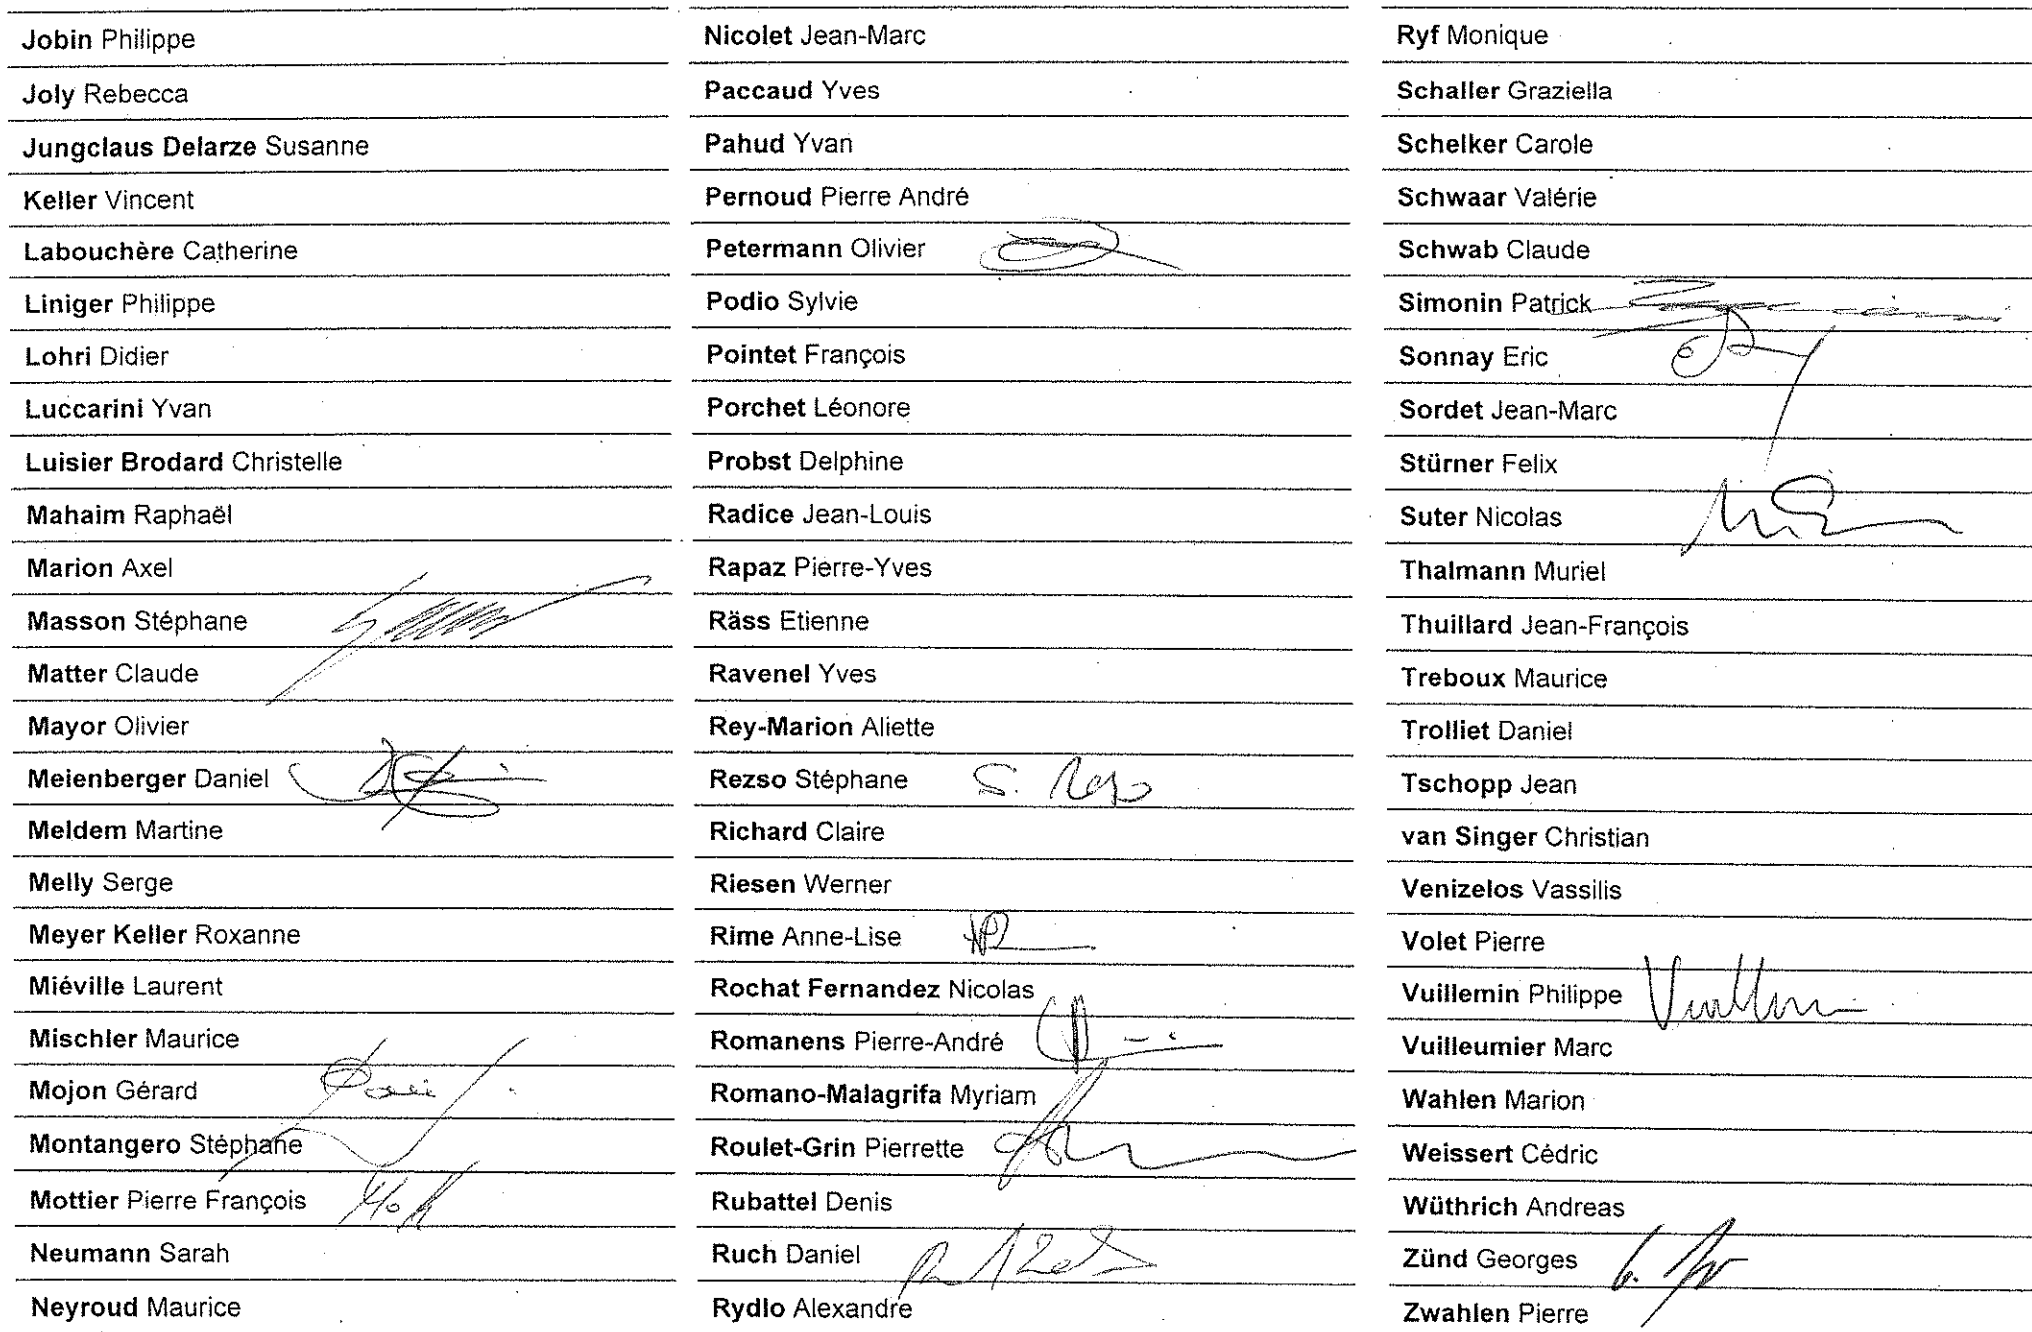 Jobin Philippe
Joly Rebecca
Jungclaus Delarze Susanne
Keller Vincent
Labouchère Catherine
Liniger Philippe
Lohri Didier
Luccarini Yvan
Luisier Brodard Christelle
Mahaim Raphaël
Marion Axel
Masson Stéphane
Matter Claude
Mayor Olivier
Meienberger Daniel
Meldem Martine
Melly Serge
Meyer Keller Roxanne
Miéville Laurent
Mischler Maurice
Mojon Gérard
Montangero Stéphane
Mottier Pierre François
Neumann Sarah
Neyroud Maurice
Nicolet Jean-Marc
Paccaud Yves
Pahud Yvan
Pernoud Pierre André
Petermann Olivier
Podio Sylvie
Pointet François
Porchet Léonore
Probst Delphine
Radice Jean-Louis
Rapaz Pierre-Yves
Räss Etienne
Ravenel Yves
Rey-Marion Aliette
Rezso Stéphane S. Rezso
Richard Claire
Riesen Werner
Rime Anne-Lise
Rochat Fernandez Nicolas
Romanens Pierre-André
Romano-Malagrifa Myriam
Roulet-Grin Pierrette
Rubattel Denis
Ruch Daniel
Rydlo Alexandre
Ryf Monique
Schaller Graziella
Schelker Carole
Schwaar Valérie
Schwab Claude
Simonin Patrick
Sonnay Eric
Sordet Jean-Marc
Stürner Felix
Suter Nicolas
Thalmann Muriel
Thuillard Jean-François
Treboux Maurice
Trolliet Daniel
Tschopp Jean
van Singer Christian
Venizelos Vassilis
Volet Pierre
Vuillemin Philippe Vuillemin
Vuilleumier Marc
Wahlen Marion
Weissert Cédric
Wüthrich Andreas
Zünd Georges
Zwahlen Pierre